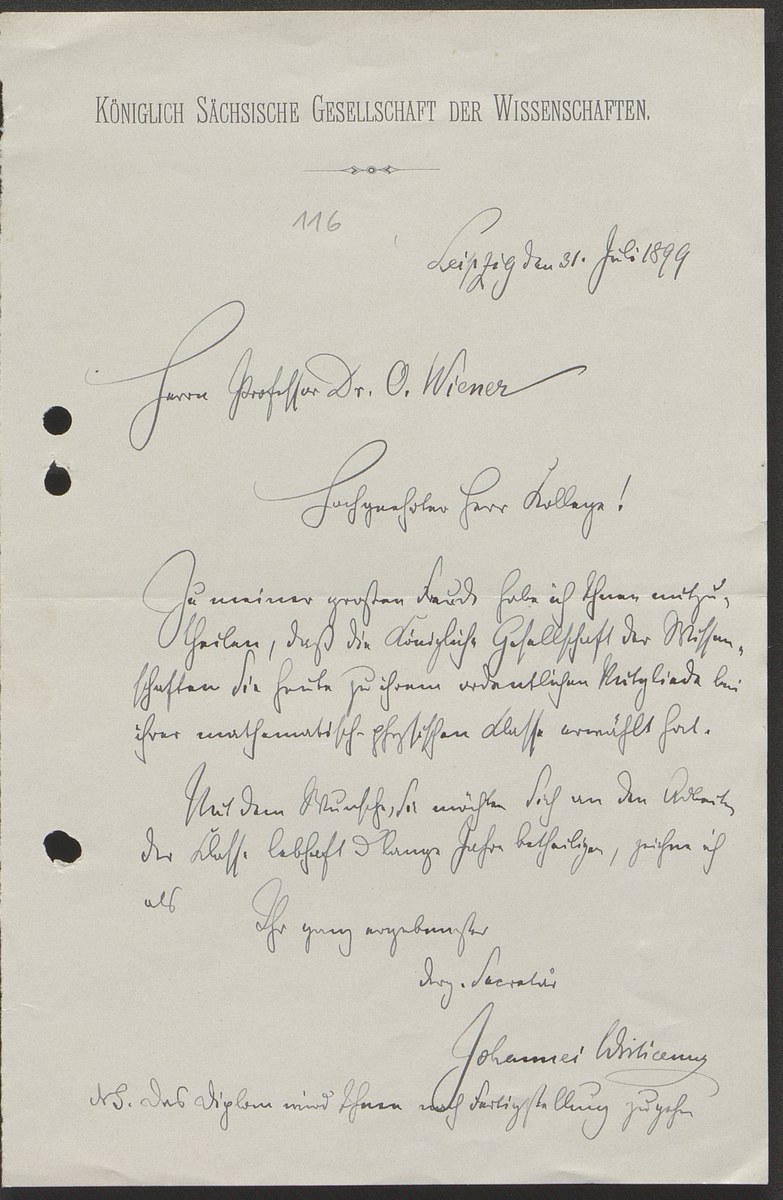 KÖNIGLICH SÄCHSISCHE GESELLSCHAFT DER WISSENSCHAFTEN.
116
Leipzig den 31. Juli 1899
Herrn Professor Dr. O. Wiener
Hochgeehrter Herr Kollege!
Zu meiner großen Freude habe ich Ihnen mitzu-
theilen, daß die Königliche Gesellschaft der Wissen-
schaften Sie heute zu ihrem ordentlichen Mitgliede bei
ihrer mathematisch-physischen Klasse erwählt hat.
Mit dem Wunsche, Sie möchten Sich an den Arbeiten
der Klasse lebhaft & lange Jahre betheiligen, zeichne ich
als
Ihr ganz ergebenster
derz. Secretär
Johannes Wislicenus
NS. Das Diplom wird Ihnen nach Fertigstellung zugehn